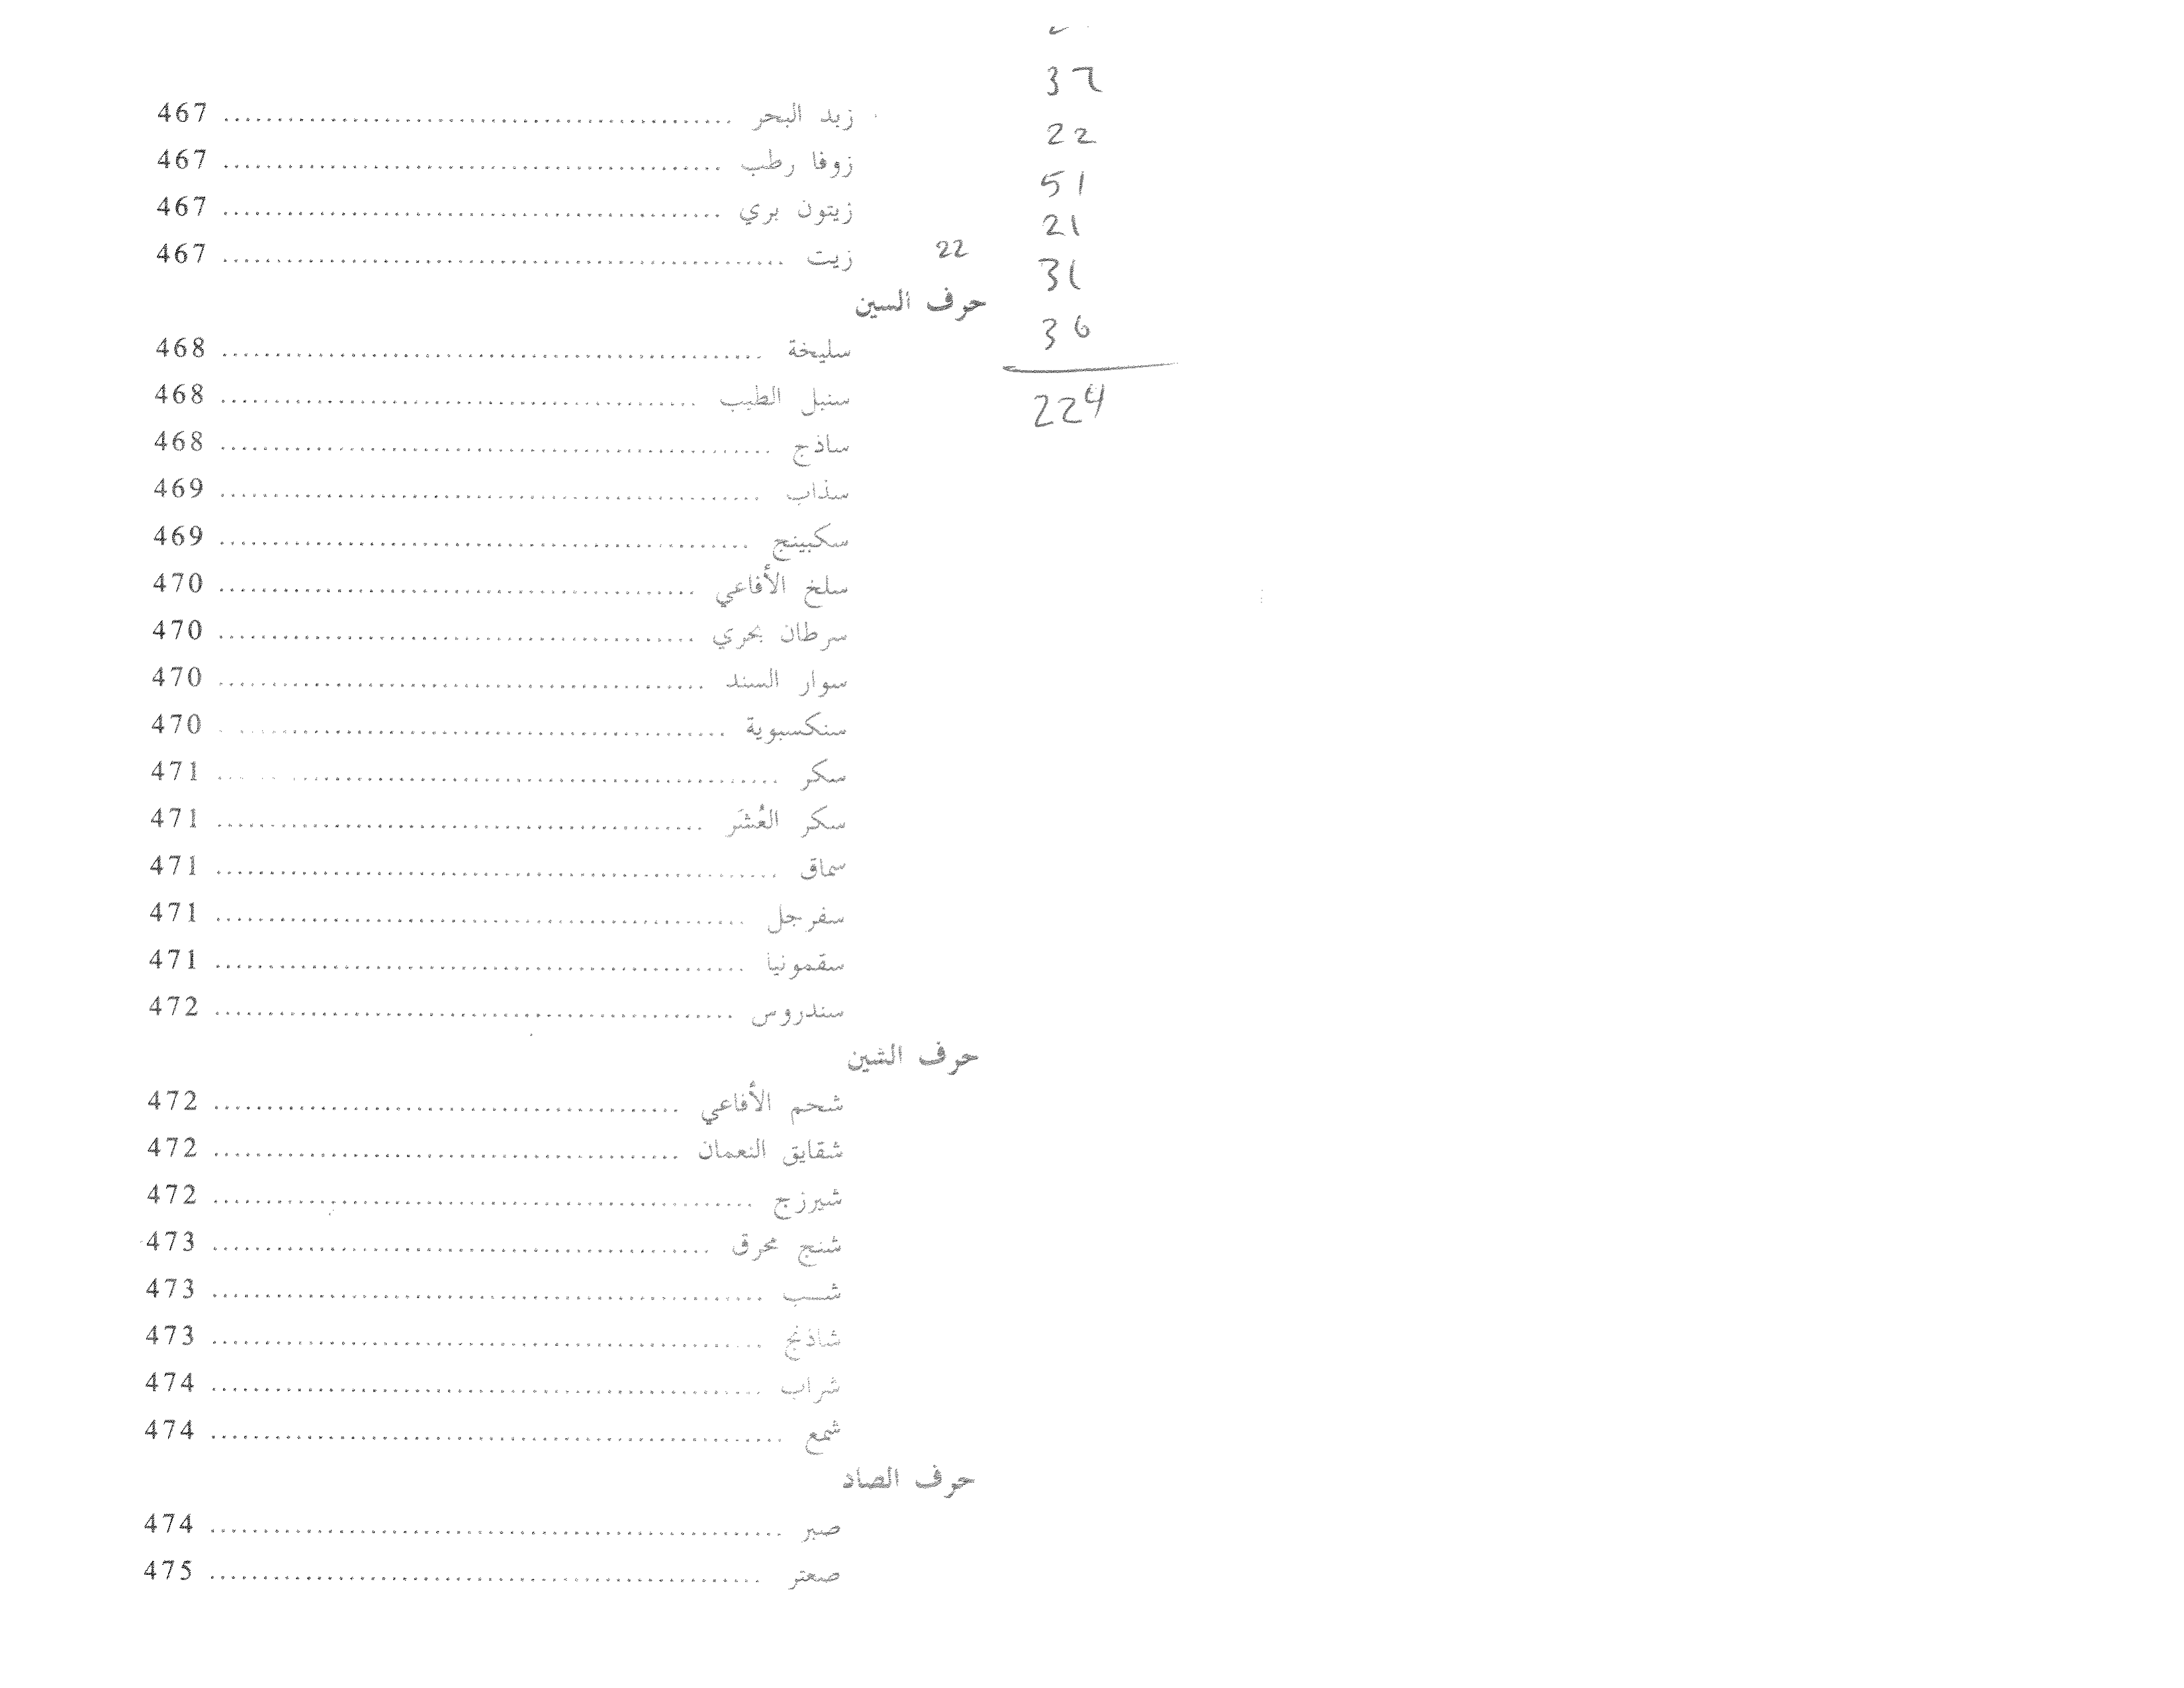 زبد البحر ........................................................ 467
زوفا رطب ........................................................ 467
زيتون بري ........................................................ 467
زيت ........................................................ 467
حرف السين
سليخة ........................................................ 468
سنبل الطيب ........................................................ 468
ساذج ........................................................ 468
سذاب ........................................................ 469
سكبينج ........................................................ 469
سلخ الأفاعي ........................................................ 470
سرطان بحري ........................................................ 470
سوار السند ........................................................ 470
سنكسبوية ........................................................ 470
سكر ........................................................ 471
سكر العُشَر ........................................................ 471
سماق ........................................................ 471
سفرجل ........................................................ 471
سقمونيا ........................................................ 471
سندروس ........................................................ 472
حرف الشين
شحم الأفاعي ........................................................ 472
شقايق النعمان ........................................................ 472
شيرزج ........................................................ 472
شنج محرق ........................................................ 473
شب ........................................................ 473
شاذنج ........................................................ 473
شراب ........................................................ 474
شمع ........................................................ 474
حرف الصاد
صبر ........................................................ 474
صعتر ........................................................ 475
22
22
51
21
31
36
224